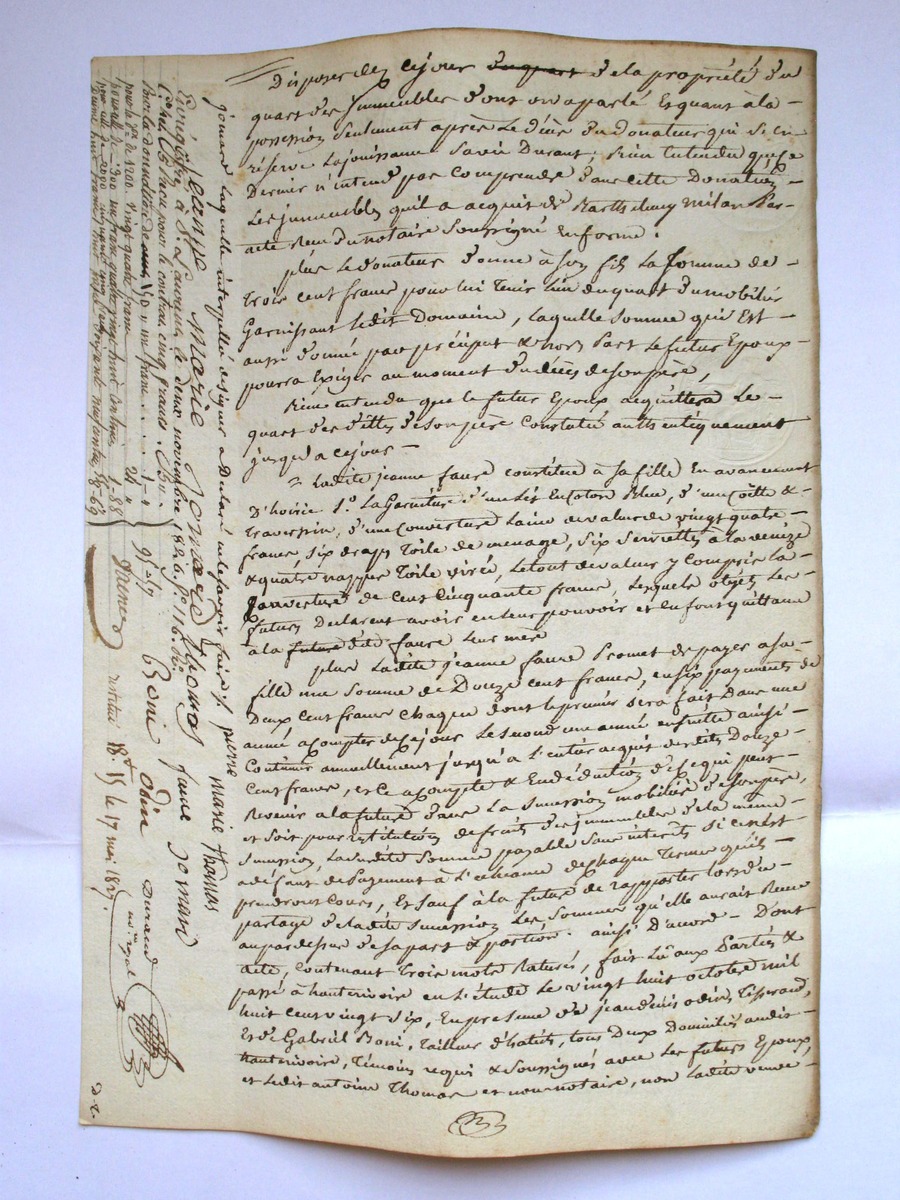 Disposer dez cejour du quart de la propriété du
quart des immeubles dont on a parlé Et quant à la -
possession seulement après Le déces du donateur qui s'en
réserve La jouissance Savie Durant, bien Entendu que ce
Dernier n'intend pas Comprendre Dans cette Donation -
Les immeubles quil a acquit de Barthelemy milan Par -
acte Reçu Du notaire Soussigné En forme.
plus Le donateur donne à Son fils La Somme de -
trois cent francs pour lui Tenir Lieu du quart du mobilier
Garnissant Ledit Domaine, Laquelle Somme qui Est -
aussi donnée par préciput & hors part Le futur Epoux -
pourra Exiger au moment du déces de son père,
bien entendu que le futur Epoux acquittera Le -
quart des dettes de son père Constatés authentiquement
jusqu'a ce jour -
Ladite jeanne faure constitue à Sa fille En avancement
D'hoirie 1.° La Garniture d'un Lit En coton Bleu, d'une coitte &
Traversin, d'une Couverture Laine de valeur de vingt quatre -
francs, Six draps Toile de menage, Six Serviettes à la venize
& quatre nappes Toile virée, Le tout de valeur y Compris La -
Couverture de Cent Cinquante francs, Lesquels objets Les -
futurs Declarent avoir en leur pouvoir et En font quittance
à la future dte faure Leur mère
plus Ladite jeanne faure Promet de payer a Sa -
fille une Somme de Douze cent francs, en Six payements de
Deux Cent francs Chaque dont Le premier Sera fait Dans une
année a Compter de Ce jour Le Second une année ensuitte ainsi -
Continuer annuellement jusqu'à L'entier acquit desdits Douze -
Cent francs, et Ce a Compte & En déduction de Ce qui peut -
Revenir a la future dans La Succession mobilière de Son père,
et Soit pour restitution de fruits des immeubles de la même -
Succession, La Susdite Somme payable Sans interets Si ce n'est -
a défaut de Payement à L'echeance de Chaque Terme qu'ils -
prendront Cours, Et Sauf à la future de rapporter lors du -
partage de Ladite Succession Les Sommes qu'elle aurait Reçue
au par dessus de Sa part & portion. ainsi D'accord - Dont
acte, Contenant Trois mots Raturés, fait Lû aux Parties &
passé à hauterivoire en L'étude Le vingt huit octobre mil
huit cent vingt Six, En presence de jean denis odin, Tisserand,
Et de Gabriel Boni, Tailleur d'habits, tous Deux Domiciliés audit -
hauterivoire, Témoins requis & Soussignés avec Les futurs Epoux,
et Ledit antoine Thomas et nous notaire, non Ladite veuve -
jomard Laquelle interpellée de signer a Déclaré ne Savoir faire %. pierre marie Thomas
jeanne marie jomard Thomas faure jomard
Boni odin Durand
n.re royal
Enrégistré à St. Laurent le deux novembre 1826. f.° 116.
Reçu pour le contrat cinq francs. 5 ".
Pour la donation de un franc . . . . 1 - "
pour le de 1200 vingt quatre francs 24 "
pour celle de 300 un franc quatre vingt huit centimes 1-88